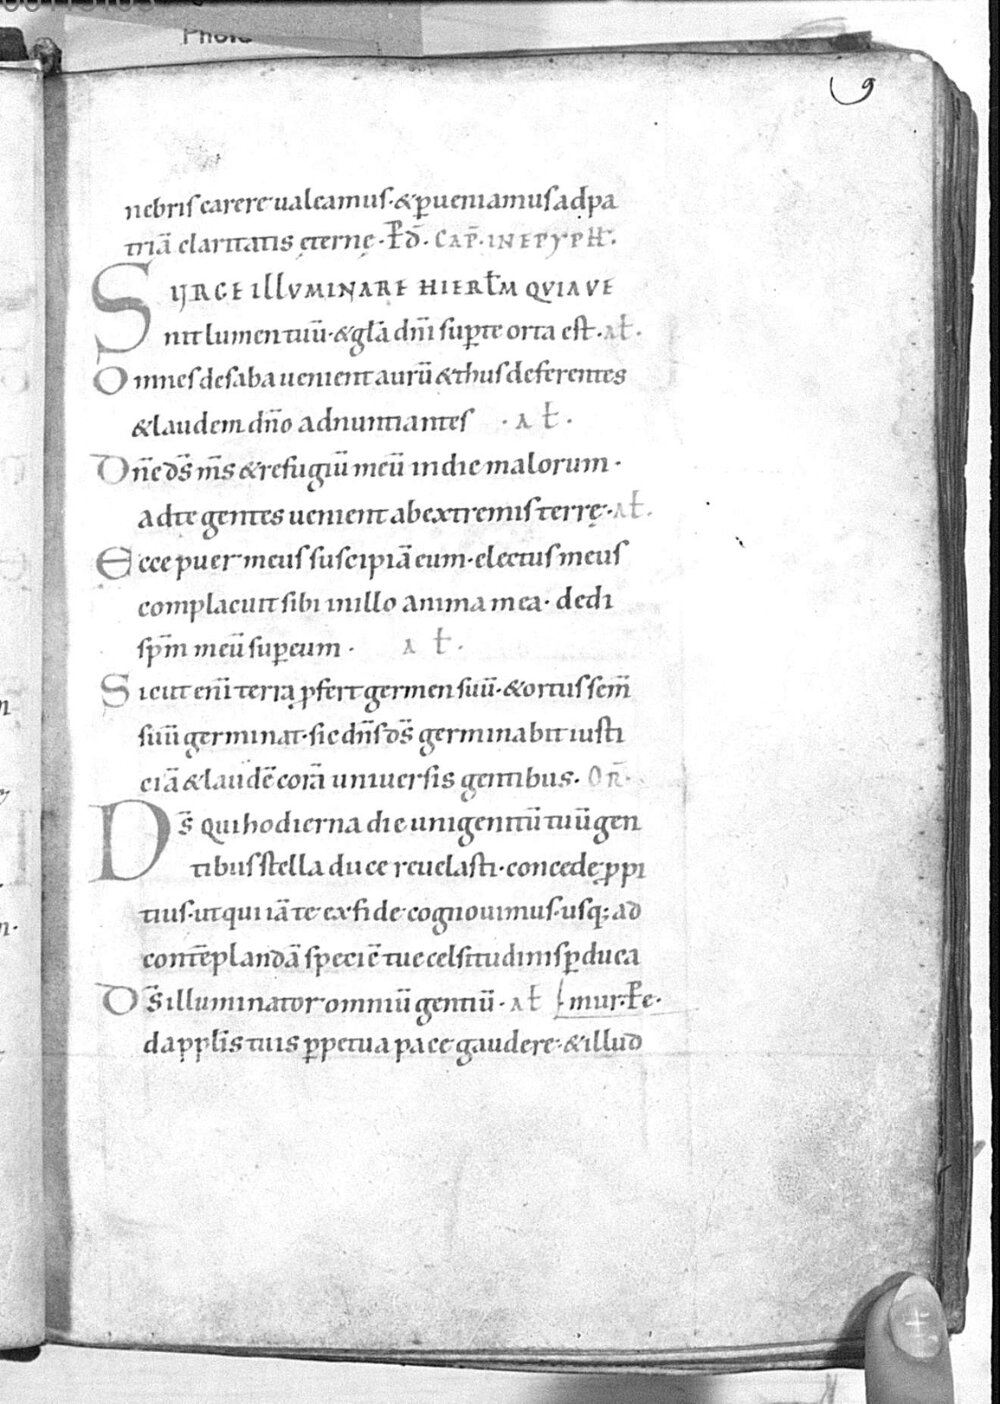 9
nebris carere ualeamus · & p̲ueniamus ad pa
triā claritatis ęternę · P̄ D̄ · CAP̄ · IN EPYPH̄ ·
SURGE ILLVMINARE HIERŁM QVIA VE
nit lumen tuū · & glā dn̄i sup̲ te orta est · AŁ ·
Omnes de saba uenient aurū & thus deferentes
& laudem dn̄o adnuntiantes · A Ł ·
Dn̄e ds̄ ms̄ & refugiū meū in die malorum ·
ad te gentes uenient ab extremis terrę · AŁ ·
Ecce puer meus suscipiā eum · electus meus
complacuit sibi in illo anima mea · dedi
spm̄ meū sup̲ eum · A Ł ·
Sicut eni̅ terra p̲fert germen suū · & ortus sem̄
suū germinat · sic dn̄s ds̄ germinabit iusti
ciā & laudē corā uniuersis gentibus · OR̄ ·
Ds̄ qui hodierna die unigenitū tuū gen
tibus stella duce reuelasti · concede p̲pi
tius · ut qui iā te ex fide cognouimus · usq; ad
contēplandā speciē tue celsitudinis p̲duca
Ds̄ illuminator omniū gentiū · AŁ mur · P̄e ·
da pplīs tuis p̲petua pace gaudere · & illud